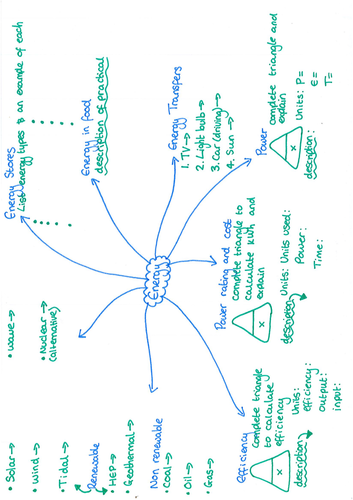 Energy
Energy Stores
List energy types & an example of each
Energy in food
description of practical
Energy Transfers
1. TV →
2. Light bulb →
3. Car (driving) →
4. Sun →
Power
complete triangle and
explain
x
Units: P=
E=
T=
description:
Power rating and cost
complete triangle to
calculate kWh and
explain
x
Units: Units used:
Power:
Time:
description
Efficiency
complete triangle
to calculate
efficiency
x
Units:
efficiency:
output:
input:
description
Non renewable
• Coal →
• Oil →
• Gas →
Renewable
• Solar →
• Wind →
• Tidal →
• HEP →
• Geothermal →
• Wave →
• Nuclear →
(alternative)